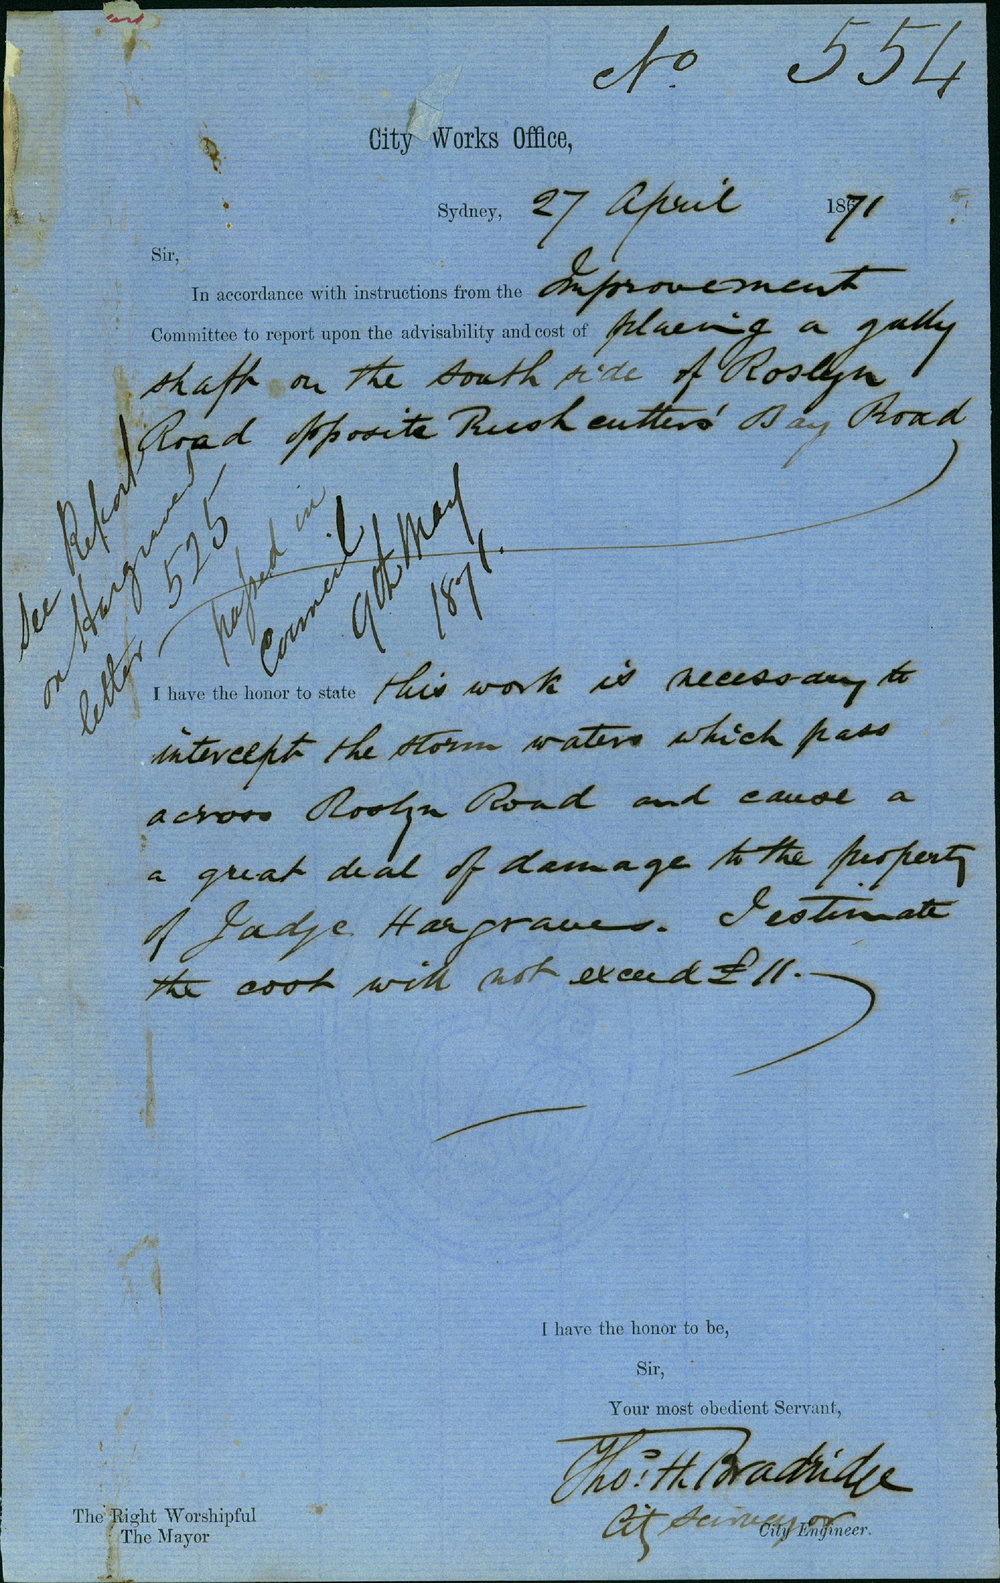 No 554
City Works Office,
Sydney, 27 April 1871
Sir,
In accordance with instructions from the Improvement
Committee to report upon the advisability and cost of placing a gully
shaft on the south side of Roslyn
Road opposite Rushcutters' Bay Road
See Report
on Hargraves
letter 525
passed in
Council
9th May
1871.
I have the honor to state this work is necessary to
intercept the storm waters which pass
across Roslyn Road and cause a
a great deal of damage to the property
of Judge Hargraves. I estimate
the cost will not exceed £11.
I have the honor to be,
Sir,
Your most obedient Servant,
Thos. H. Bradridge
City Surveyor
City Engineer.
The Right Worshipful
The Mayor